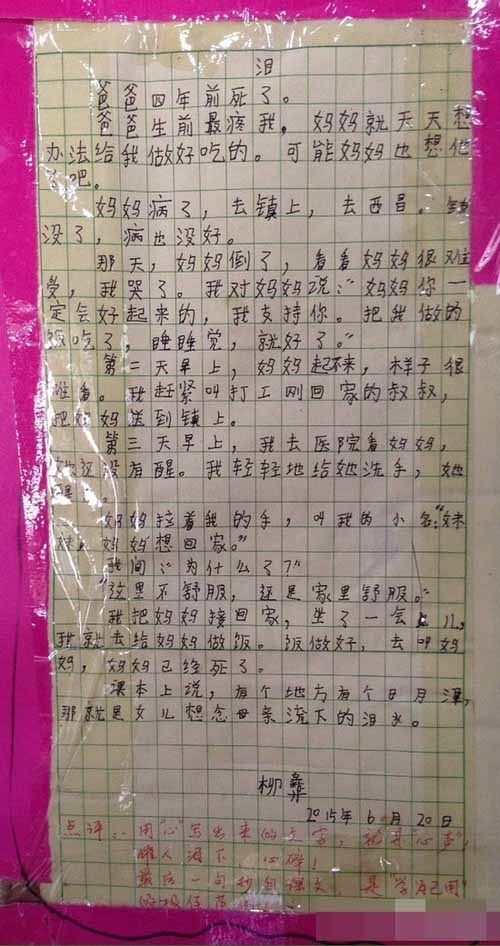 泪
爸爸四年前死了。
爸爸生前最疼我，妈妈就天天想
办法给我做好吃的。可能妈妈也想他
了吧。
妈妈病了，去镇上，去西昌。钱
没了，病也没好。
那天，妈妈倒了，看看妈妈很难
受，我哭了。我对妈妈说：“妈妈你一
定会好起来的，我支持你。把我做的
饭吃了，睡睡觉，就好了。”
第二天早上，妈妈起不来，样子很
难看。我赶紧叫打工刚回家的叔叔，
把妈妈送到镇上。
第三天早上，我去医院看妈妈，
她还没有醒。我轻轻地给她洗手，她
醒
妈妈拉着我的手，叫我的小名：“妹
妹，妈妈想回家。”
我问：“为什么了？”
“这里不舒服，还是家里舒服。”
我把妈妈接回家，坐了一会儿，
我就去给妈妈做饭。饭做好，去叫妈
妈，妈妈已经死了。
课本上说，有个地方有个日月潭，
那就是女儿想念母亲流下的泪水。
柳彝
2015年6月20日
点评：用“心”写出来的文字，就是“心声”，
催人泪下 心碎！
最后一句抄自课文，是“学为己用”